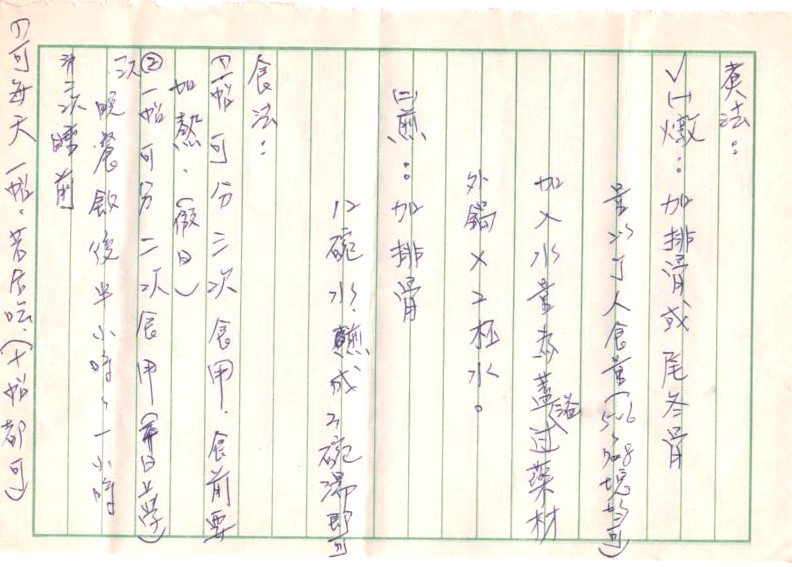 煮法：
✓㈠燉：加排骨或尾冬骨
量以丁人食量(5、6 7、8塊均可)
加入水量為蓋(溢)过藥材
外鍋×2杯水。
㈡煎：加排骨
12碗水，煎成2碗湯即可
食法：
(1)一帖可分三次食用，食前要
加熱。(假日)
②一帖可分二次食用(平日上学)
次晚餐飯後半小時～一小時
才二次睡前
(1)可每天一帖。(十帖都可)